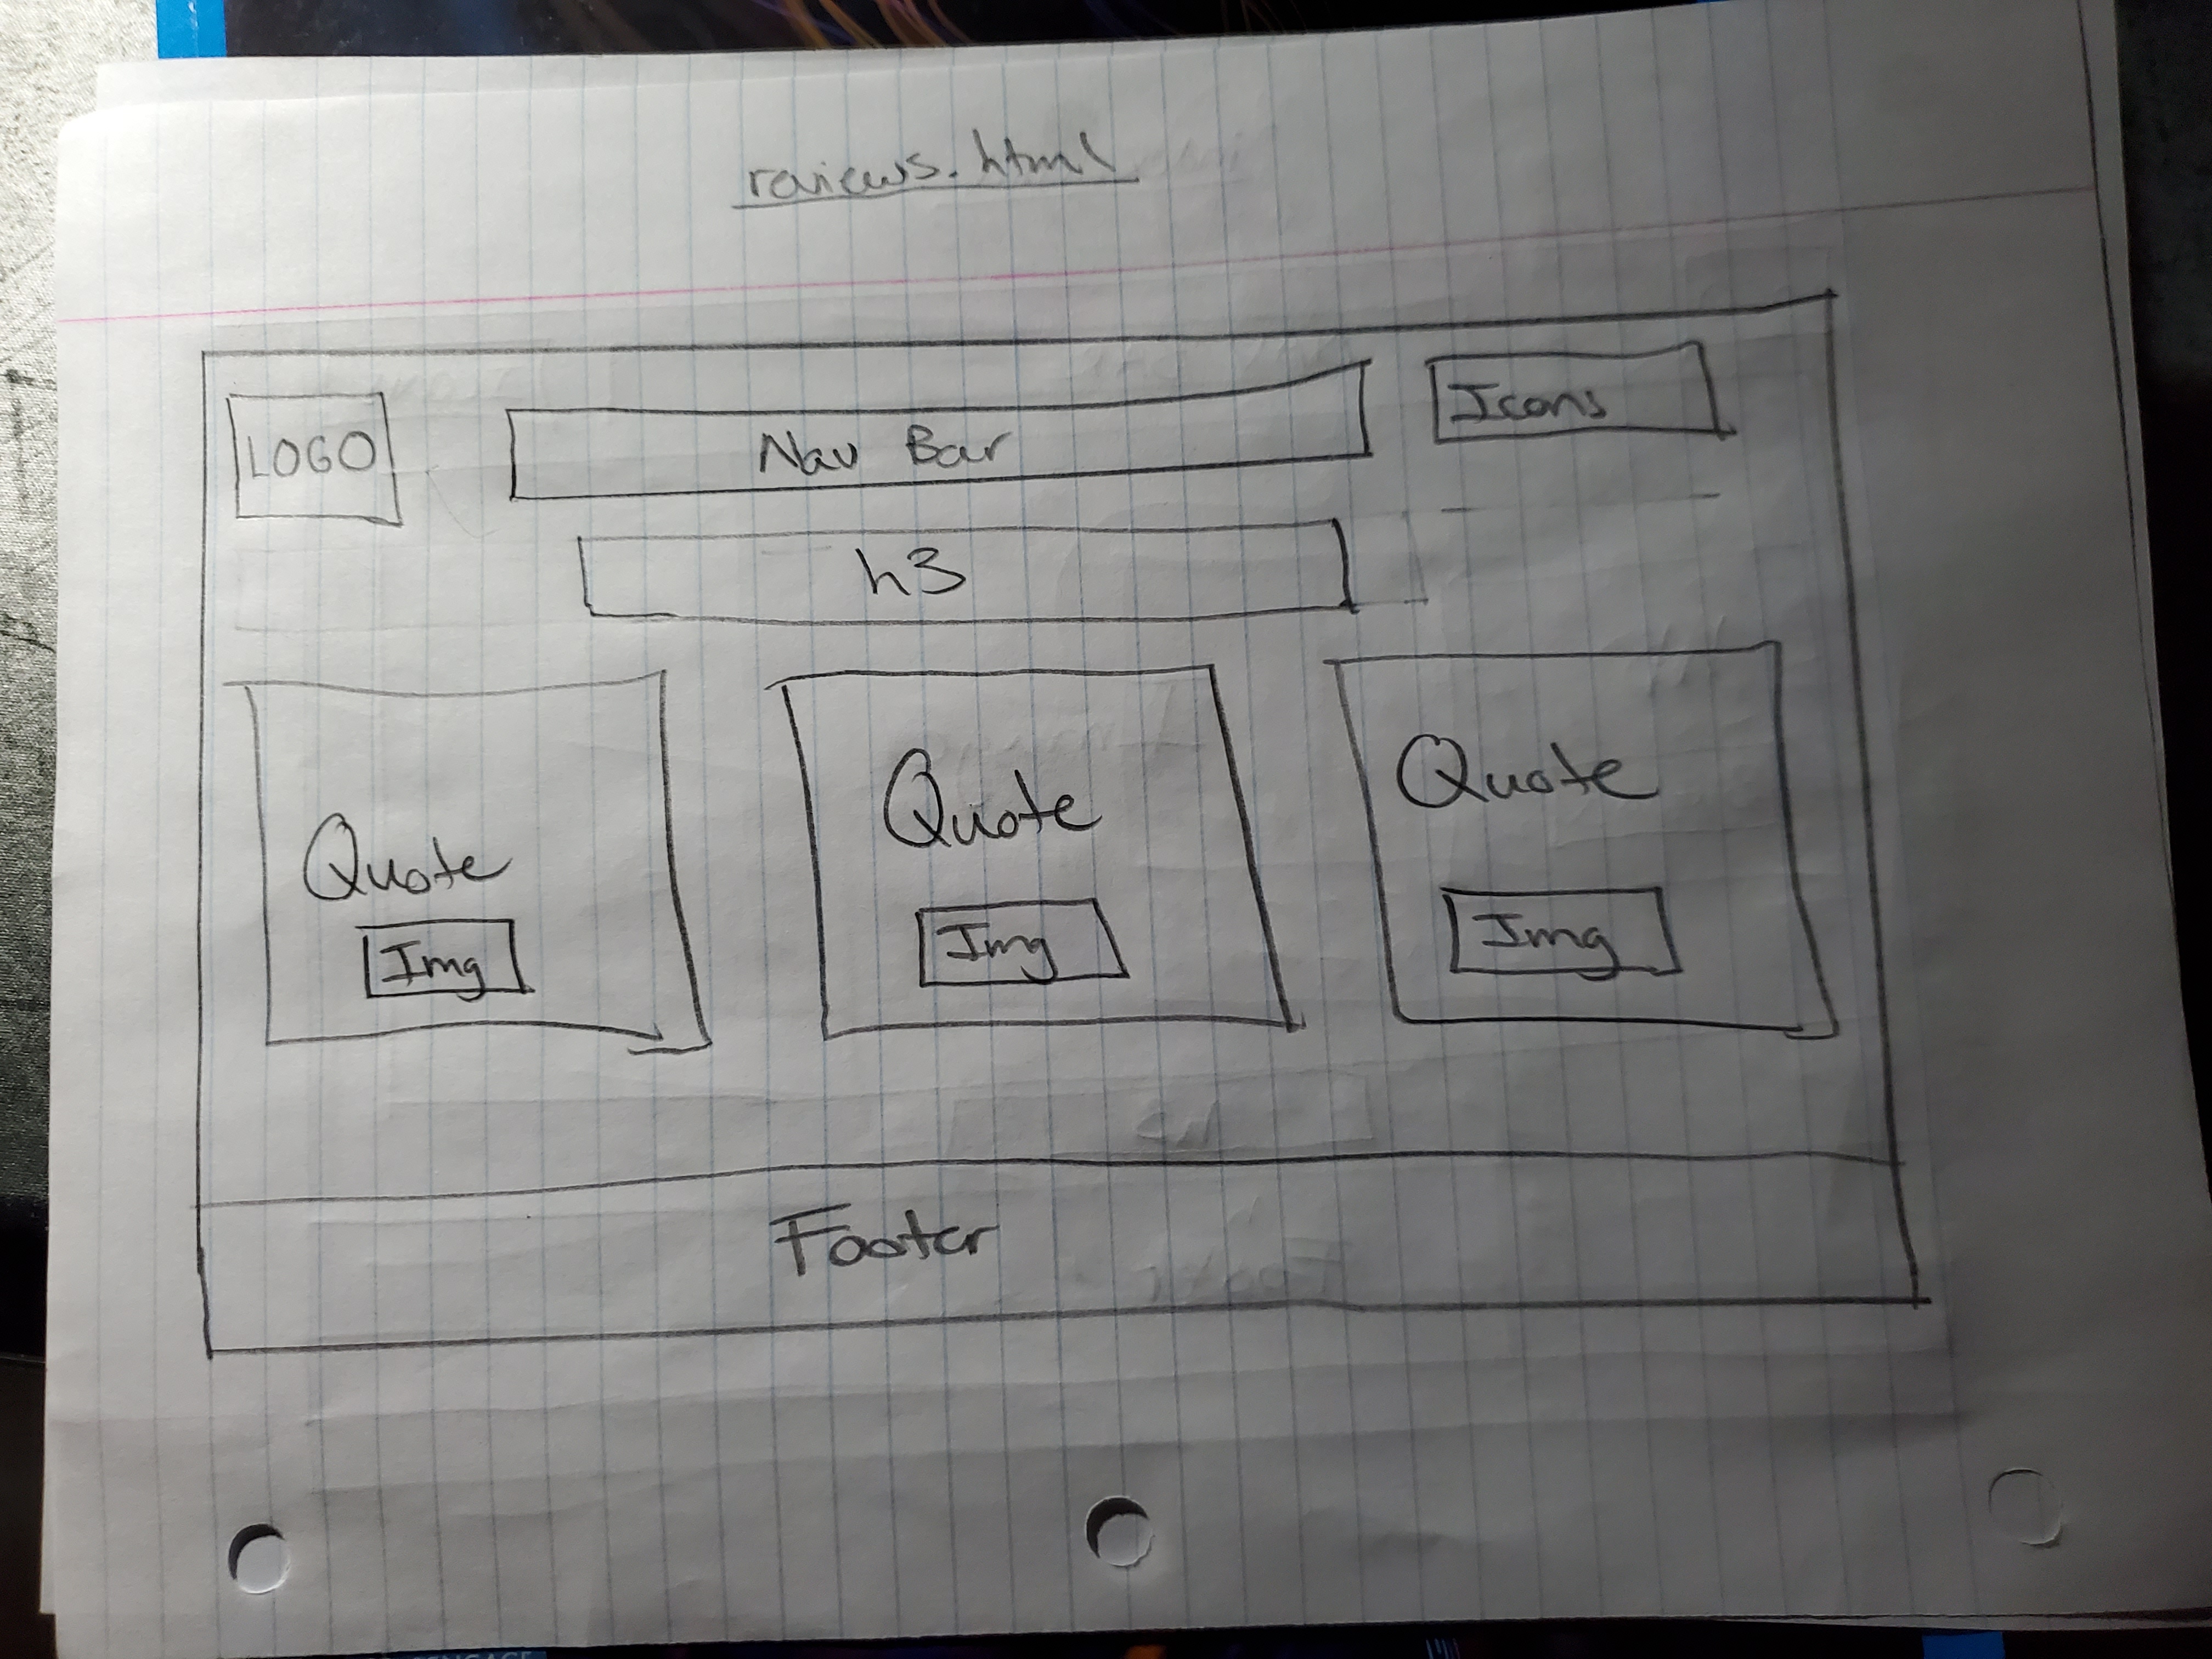 reviews.html
LOGO
Nav Bar
Icons
h3
Quote
Img
Quote
Img
Quote
Img
Footer